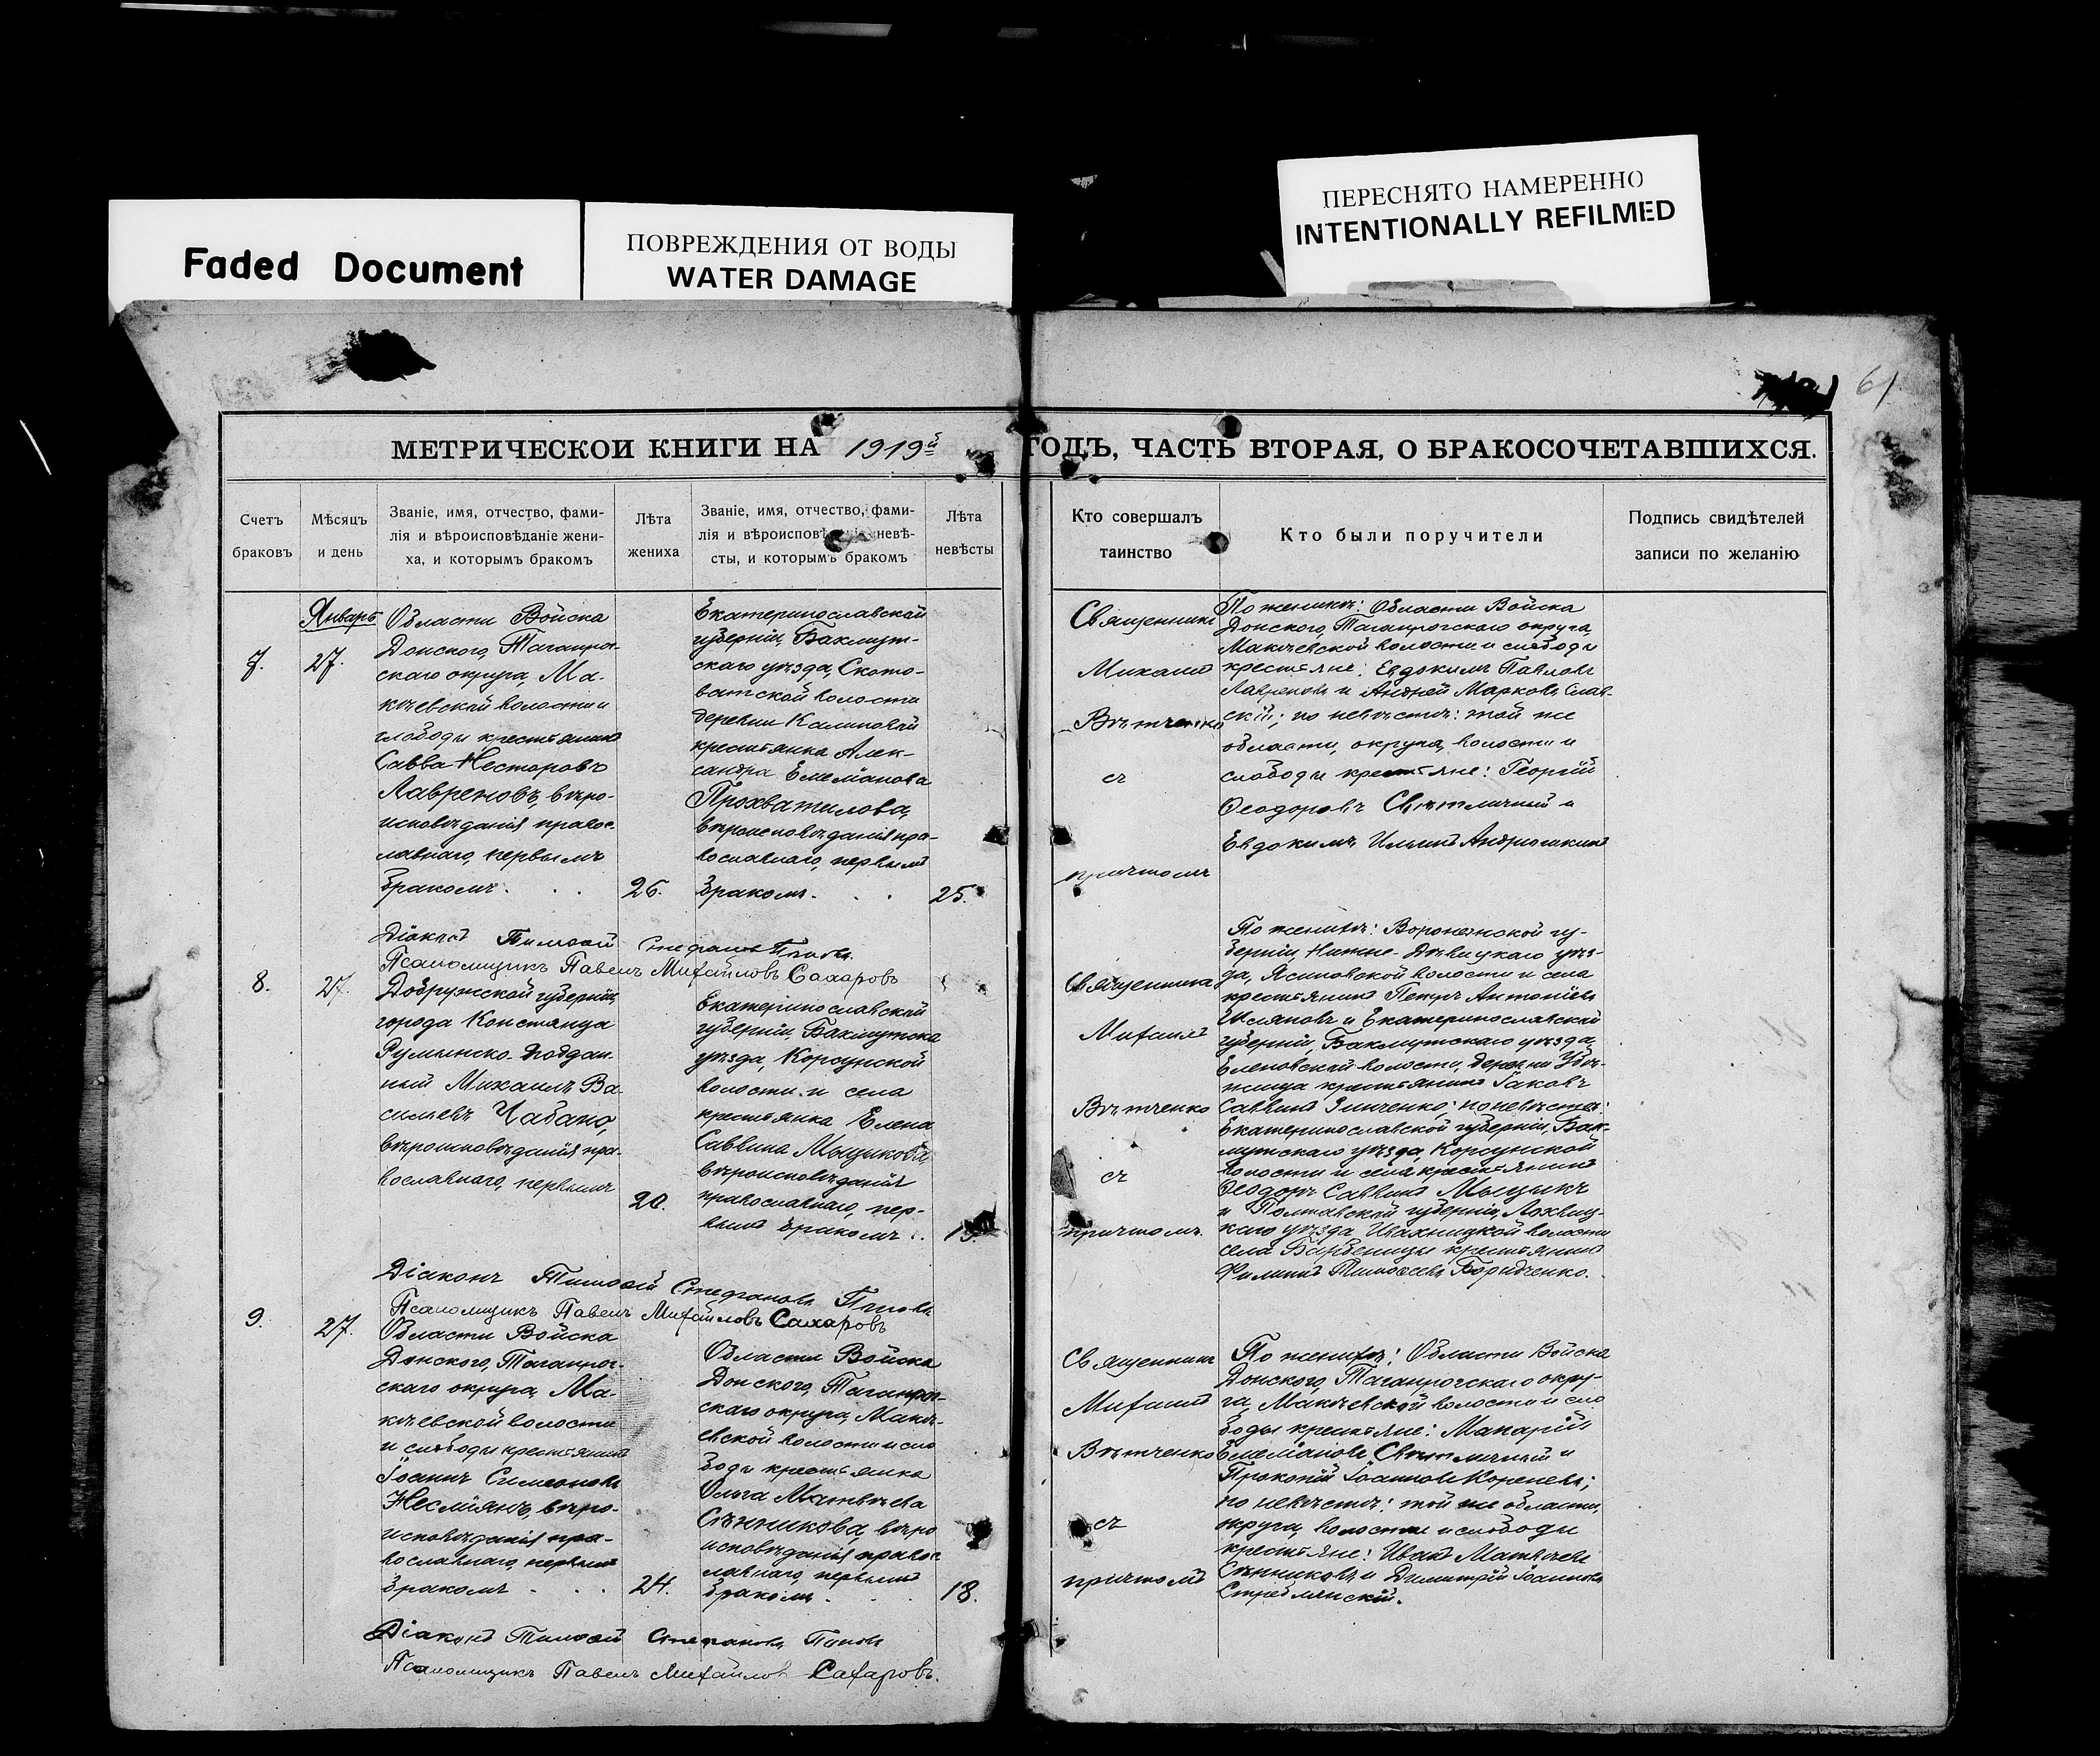 ПЕРЕСНЯТО НАМЕРЕННО
INTENTIONALLY REFILMED
Faded Document
ПОВРЕЖДЕНИЯ ОТ ВОДЫ
WATER DAMAGE
61
МЕТРИЧЕСКОИ КНИГИ НА 1919й ГОДЪ, ЧАСТЬ ВТОРАЯ, О БРАКОСОЧЕТАВШИХСЯ.
Счетъ
браковъ
Мѣсяцъ
и день
Званіе, имя, отчество, фами-
лія и вѣроисповѣданіе жени-
ха, и которымъ бракомъ
Лѣта
жениха
Званіе, имя, отчество, фами-
лія и вѣроисповѣданіе невѣ-
сты, и которымъ бракомъ
Лѣта
невѣсты
Кто совершалъ
таинство
Кто были поручители
Подпись свидѣтелей
записи по желанію
7.
Январь
27.
Области Войска
Донского, Таганрог-
скаго округа, Ма-
кѣевской волости и
слободы крестьянинъ
Савва Несторовъ
Лавреновъ, вѣро-
исповѣданія правос-
лавнаго, первымъ
бракомъ.
26.
Екатеринославской
губерніи, Бахмут-
скаго уѣзда, Ското-
ватской волости
деревни Калиновой
крестьянка Алек-
сандра Емеліанова
Прохватилова,
вѣроисповѣданія пра-
вославнаго, первымъ
бракомъ.
25.
Священникъ
Михаилъ
Вѣтченко
съ
причтомъ
По женихѣ: Области Войска
Донского, Таганрогскаго округа,
Макѣевской волости и слободы
крестьяне: Евдокимъ Павловъ
Лавреновъ и Андрей Марковъ Слав-
скій; по невѣстѣ: той же
области, округа, волости и
слободы крестьяне: Георгій
Ѳеодоровъ Свѣтличный и
Евдокимъ Ильинъ Андрюшкинъ
Діаконъ Тимоѳей Стефановъ
Псаломщикъ Павелъ Михайловъ Сахаровъ
8.
27.
Добружской губерніи,
города Констанца
Румынско-поддан-
ный Михаилъ Ва-
сильевъ Чабанъ,
вѣроисповѣданія пра-
вославнаго, первымъ
20.
Екатеринославской
губерніи, Бахмутска
уѣзда, Корсунской
волости и села
крестьянка Елена
Саввина Мыцыкова,
вѣроисповѣданія
православнаго, пер-
вымъ бракомъ.
Священникъ
Михаилъ
Вѣтченко
съ
причтомъ.
По женихѣ: Воронежской гу-
берніи, Нижне-Дѣвицкаго уѣз-
да, Ясиновской волости и села
крестьянинъ Петръ Антоніевъ
и Екатеринославской
губерніи, Бахмутскаго уѣзда,
Еленовской волости, деревни Убѣ-
жища крестьянинъ Іаковъ
Саввинъ Зинченко; по невѣстѣ:
Екатеринославской губерніи, Бах-
мутскаго уѣзда, Корсунской
волости и села крестьянинъ
Ѳеодоръ Саввинъ Мыцыкъ
и Полтавской губерніи, Лохвиц-
каго уѣзда, волости
села крестьянинъ
Филиппъ Тимоѳеевъ
Діаконъ Тимоѳей Стефановъ
Псаломщикъ Павелъ Михайловъ Сахаровъ
9.
27.
Области Войска
Донского, Таганрог-
скаго округа, Ма-
кѣевской волости
и слободы крестьянинъ
Іоаннъ Симеоновъ
Несміянъ, вѣро-
исповѣданія пра-
вославнаго, первымъ
бракомъ
24.
Области Войска
Донского, Таганрог-
скаго округа, Макѣ-
евской волости и сло
боды крестьянка
Ольга Матвѣева
Сѣнникова, вѣро
исповѣданія правос
лавнаго, первымъ
бракомъ.
18.
Священникъ
Михаилъ
Вѣтченко
съ
причтомъ
По женихѣ: Области Войска
Донского, Таганрогскаго окру-
га, Макѣевской волости и сло
боды крестьяне: Макарій
Емеліановъ Свѣтличный и
Прокопій Іоанновъ Кореневъ;
по невѣстѣ: той же области,
округа, волости и слободы
крестьяне: Иванъ Матвѣевъ
Сѣнниковъ и Димитрій Іоанновъ
Стреблянскій.
Діаконъ Тимоѳей Стефановъ
Псаломщикъ Павелъ Михайловъ Сахаровъ.